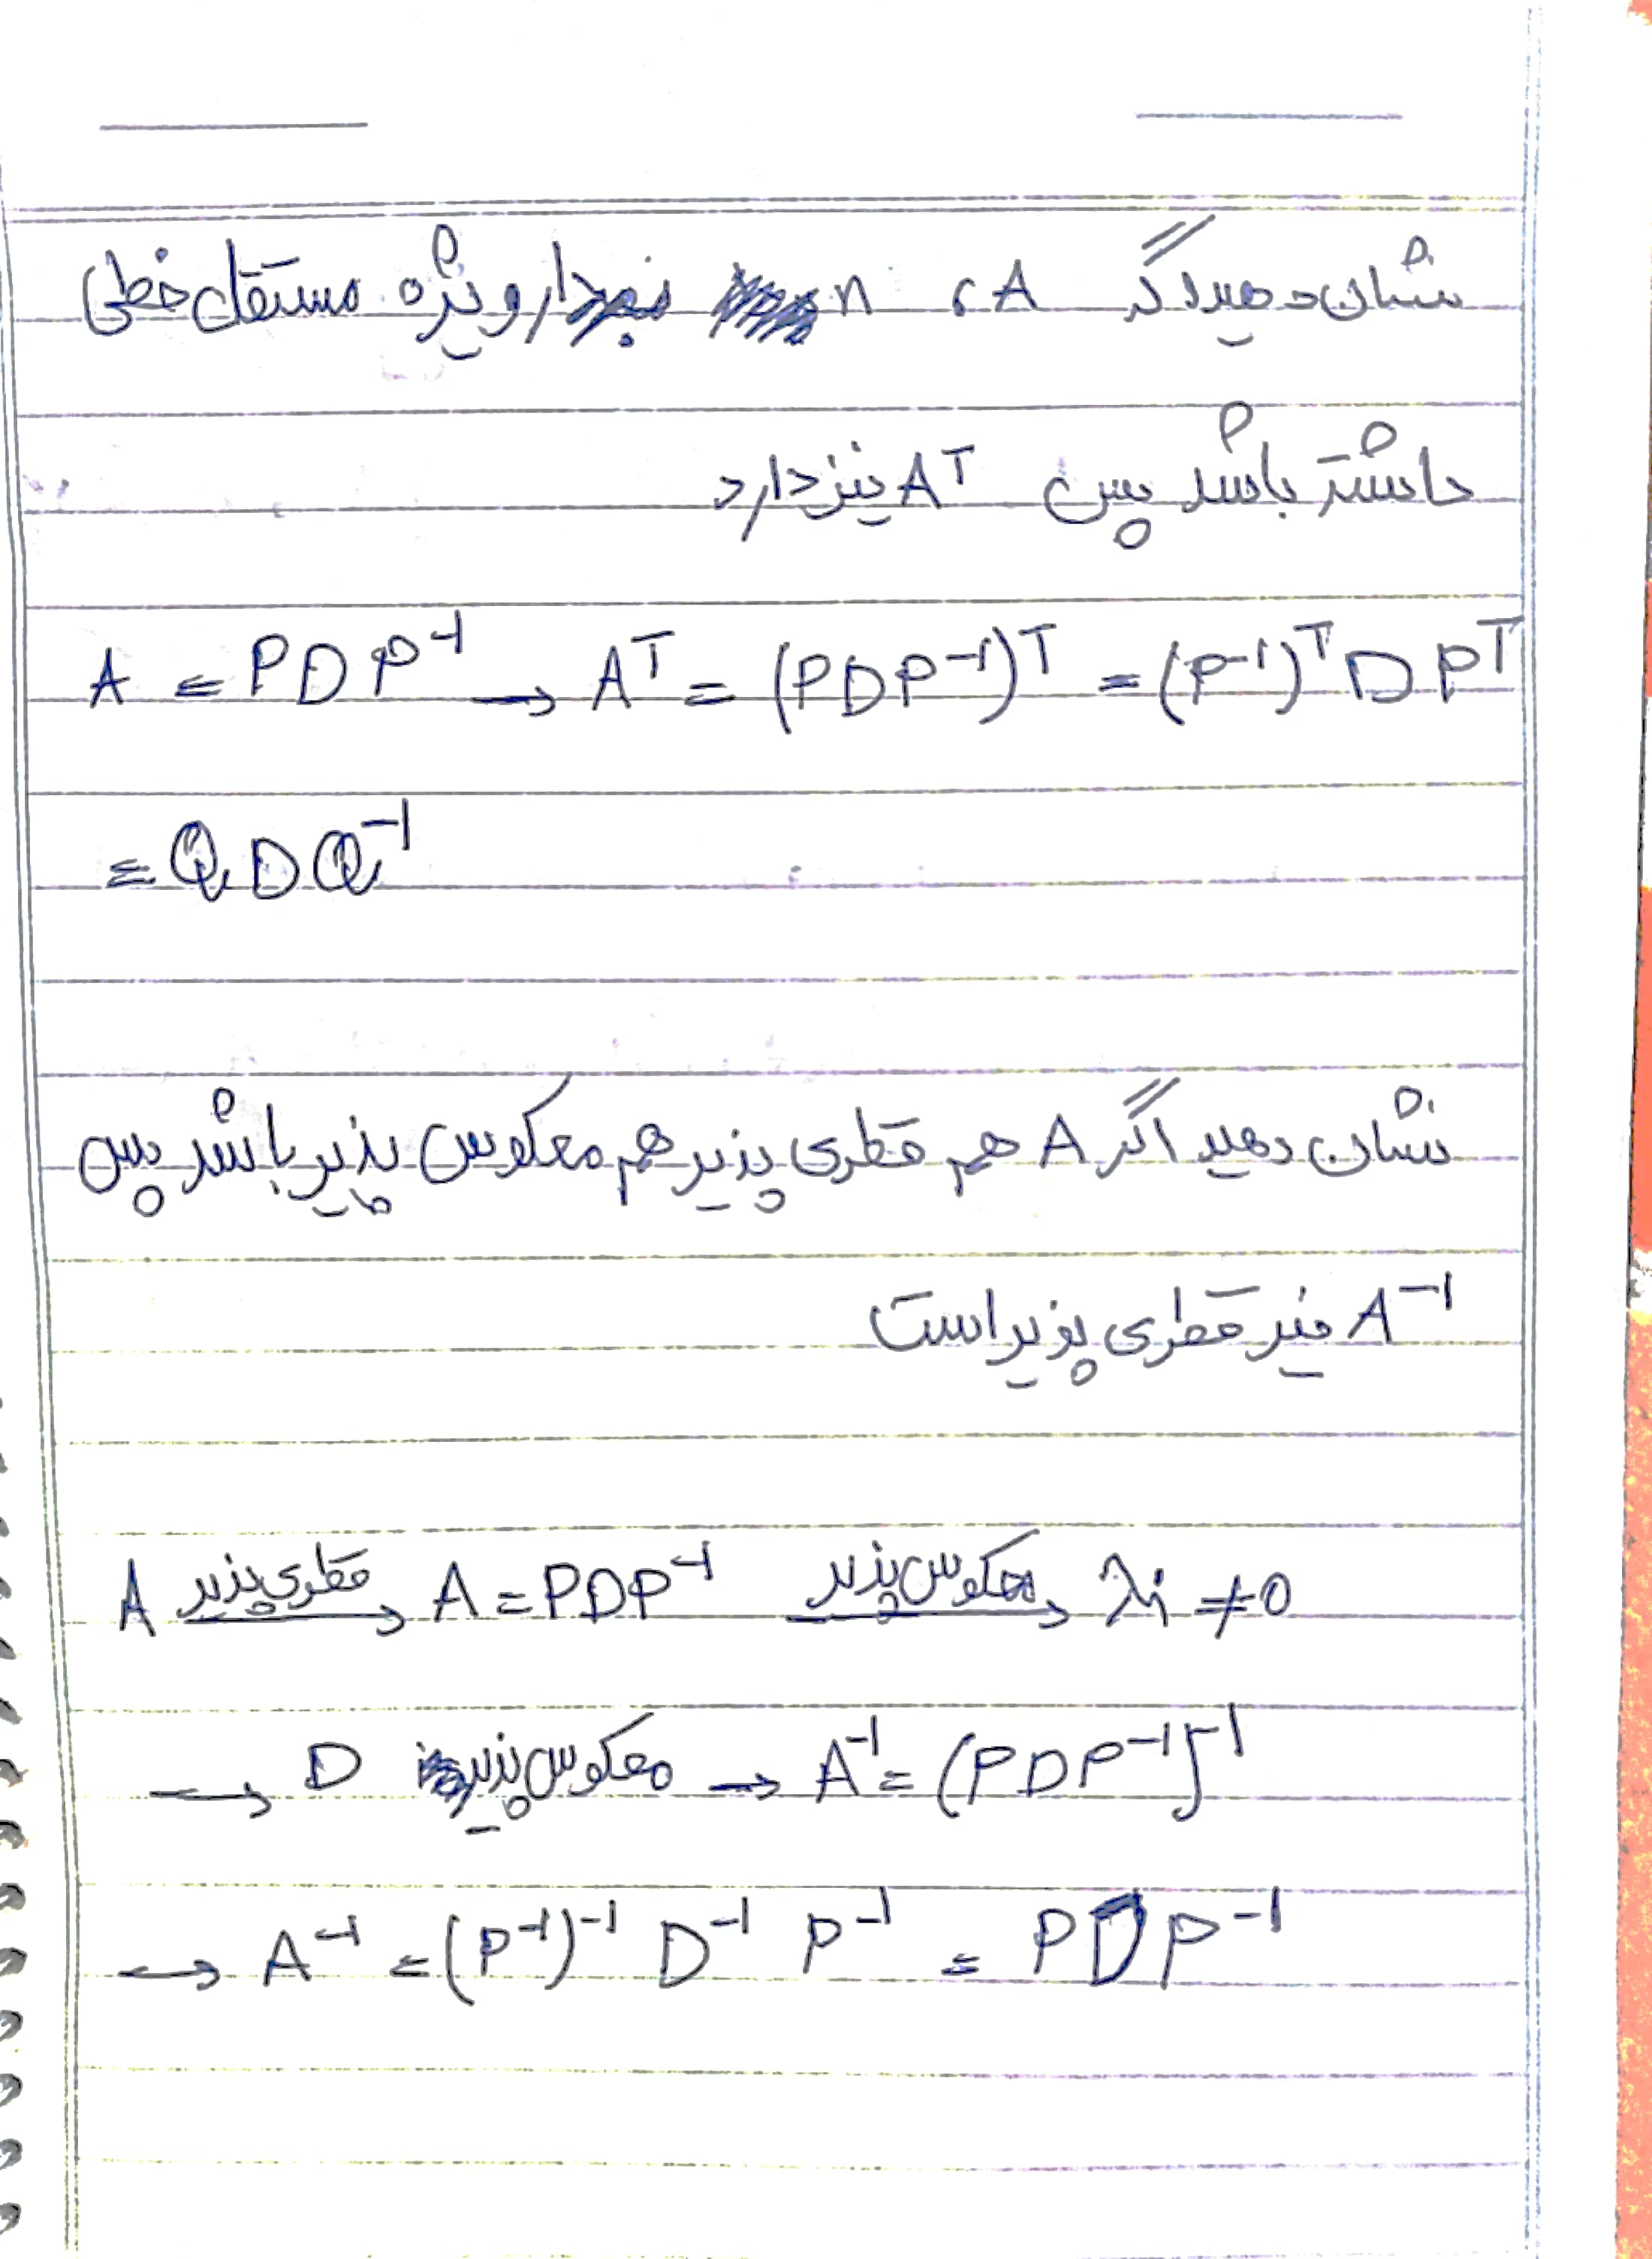 نشان دهید اگر A ، n بردار ویژه مستقل خطی
داشته باشد پس Aᵀ نیز دارد
A = PDP⁻¹ → Aᵀ = (PDP⁻¹)ᵀ = (P⁻¹)ᵀ D Pᵀ
= Q D Q⁻¹
نشان دهید اگر A هم قطری پذیر هم معکوس پذیر باشد پس
A⁻¹ نیز قطری پذیر است
A قطری پذیر → A = PDP⁻¹ معکوس پذیر → λi ≠ 0
→ D معکوس پذیر → A⁻¹ = (PDP⁻¹)⁻¹
→ A⁻¹ = (P⁻¹)⁻¹ D⁻¹ P⁻¹ = PDP⁻¹